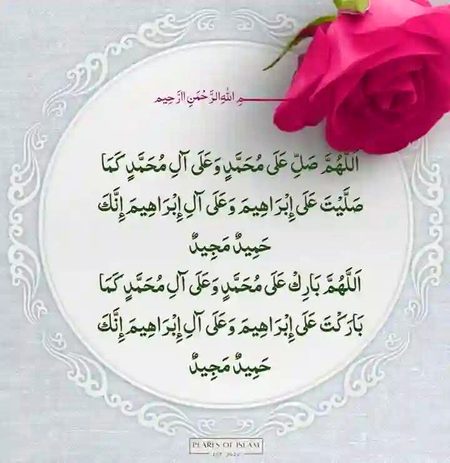 بِسْمِ اللهِ الرَّحْمٰنِ الرَّحِيمِ
اَللّٰهُمَّ صَلِّ عَلَى مُحَمَّدٍ وَعَلَى آلِ مُحَمَّدٍ كَمَا
صَلَّيْتَ عَلَى إِبْرَاهِيمَ وَعَلَى آلِ إِبْرَاهِيمَ إِنَّكَ
حَمِيدٌ مَجِيدٌ
اَللّٰهُمَّ بَارِكْ عَلَى مُحَمَّدٍ وَعَلَى آلِ مُحَمَّدٍ كَمَا
بَارَكْتَ عَلَى إِبْرَاهِيمَ وَعَلَى آلِ إِبْرَاهِيمَ إِنَّكَ
حَمِيدٌ مَجِيدٌ
PEARLS OF ISLAM